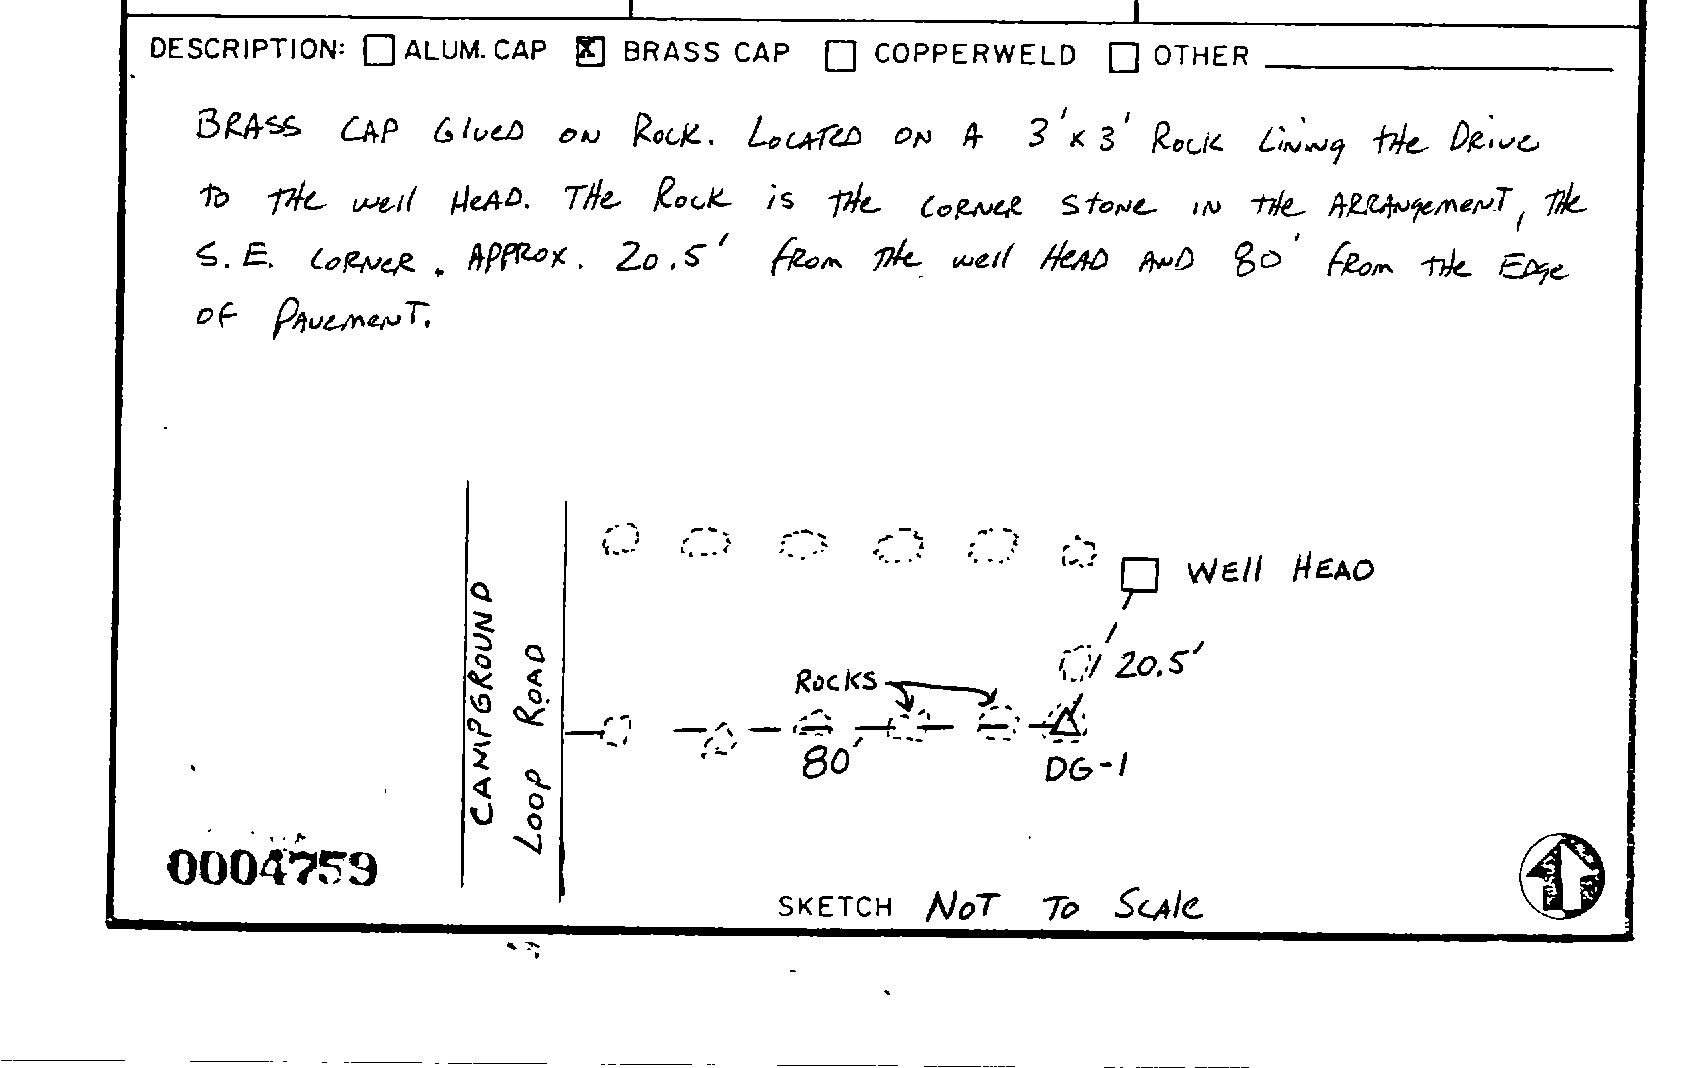 DESCRIPTION: ALUM. CAP X BRASS CAP COPPERWELD OTHER
BRASS CAP GlUED ON ROCK. LOCATED ON A 3' x 3' ROCK LiNiNg tHe DRivE
TO THe well HeAD. THe ROCK is THe CORNER STONE IN tHe ARRANgemenT, THe
S.E. CORNER. APPROX. 20.5' from THe well HEAD AND 80' from tHe EDge
OF PAvemenT.
WEll HEAD
20.5'
ROCKS
80'
DG-1
CAMPGROUND
LOOP ROAD
0004759
SKETCH NOT TO SCAlE